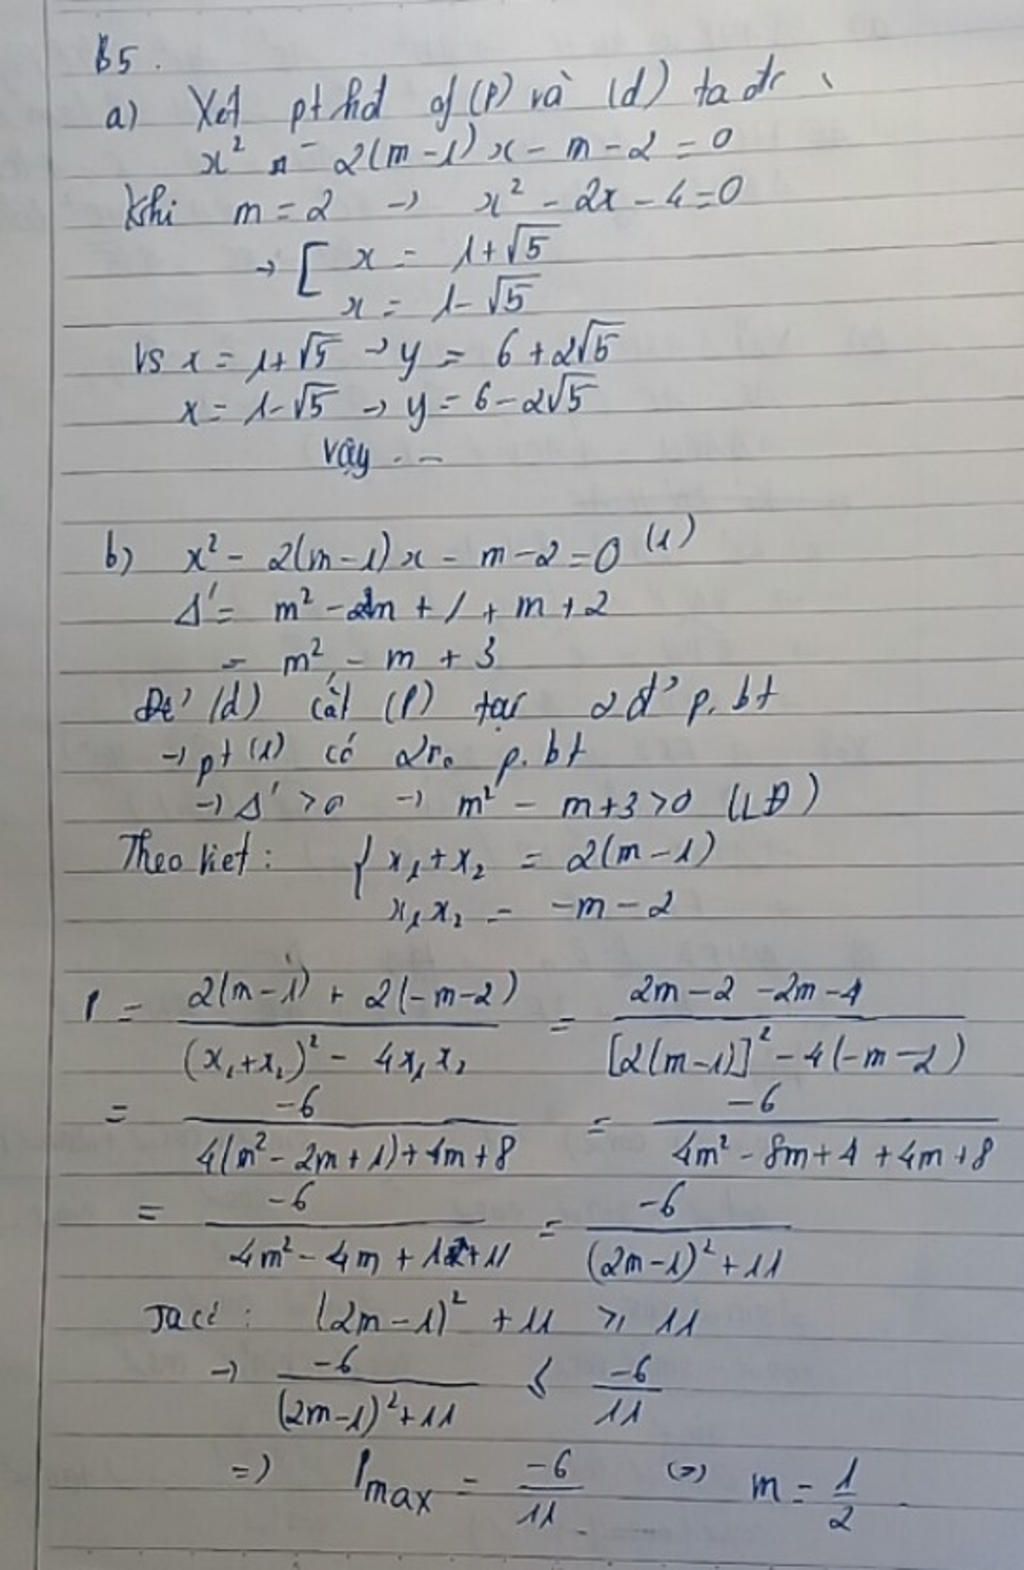 B5.
a) Xét pt hđ of (P) và (d) ta đc
x² - 2(m-1)x - m - 2 = 0
Khi m = 2 → x² - 2x - 4 = 0
→ [ x = 1+√5
x = 1-√5
Vs x = 1+√5 → y = 6+2√5
x = 1-√5 → y = 6-2√5
Vậy ...
b) x² - 2(m-1)x - m - 2 = 0 (1)
Δ' = m² - 2m + 1 + m + 2
= m² - m + 3
Để (d) cắt (P) tại 2 đ' p. bt
→ pt (1) có 2 no p. bt
→ Δ' > 0 → m² - m + 3 > 0 (LĐ)
Theo Viet: { x₁ + x₂ = 2(m-1)
x₁x₂ = -m - 2
P = (2(m-1) + 2(-m-2)) / ((x₁+x₂)² - 4x₁x₂) = (2m - 2 - 2m - 4) / ([2(m-1)]² - 4(-m-2))
= -6 / (4(m² - 2m + 1) + 4m + 8) = -6 / (4m² - 8m + 4 + 4m + 8)
= -6 / (4m² - 4m + 1 + 11) = -6 / ((2m-1)² + 11)
Ta có: (2m-1)² + 11 ≥ 11
→ -6 / ((2m-1)² + 11) ≤ -6/11
=> Pmax = -6/11 (=) m = 1/2.